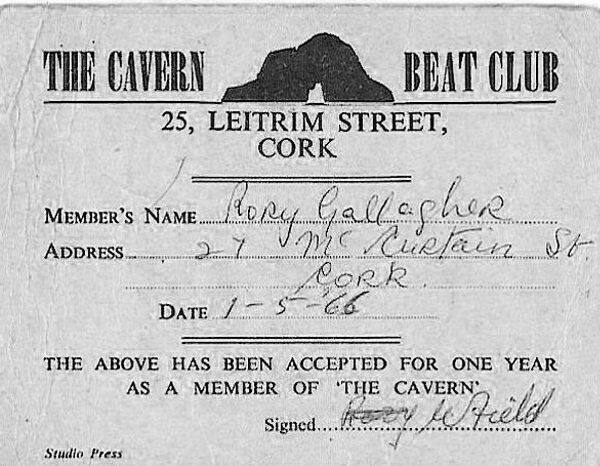 THE CAVERN BEAT CLUB
25, LEITRIM STREET,
CORK
MEMBER'S NAME Rory Gallagher
ADDRESS 27 McCurtain St.
Cork.
DATE 1-5-66
THE ABOVE HAS BEEN ACCEPTED FOR ONE YEAR
AS A MEMBER OF 'THE CAVERN'
Signed
Studio Press